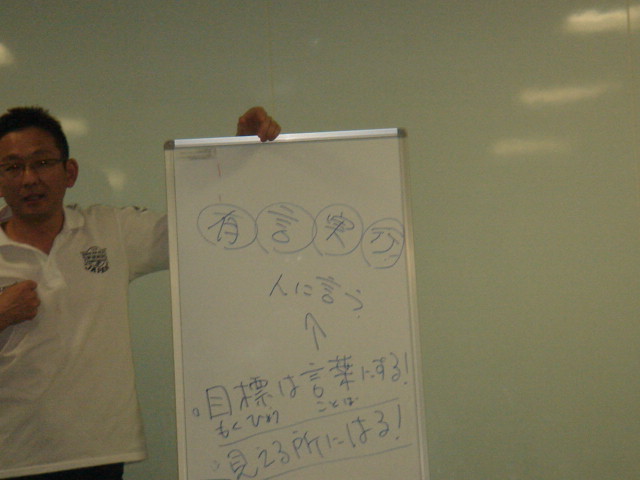 有言実行
人に言う
↑
。目標は言葉にする!
もくひょう ことば
。見える所にはる!